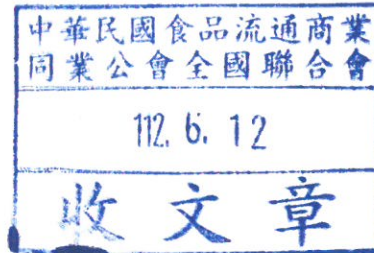 中華民國食品流通商業
同業公會全國聯合會
112. 6. 12
收文章